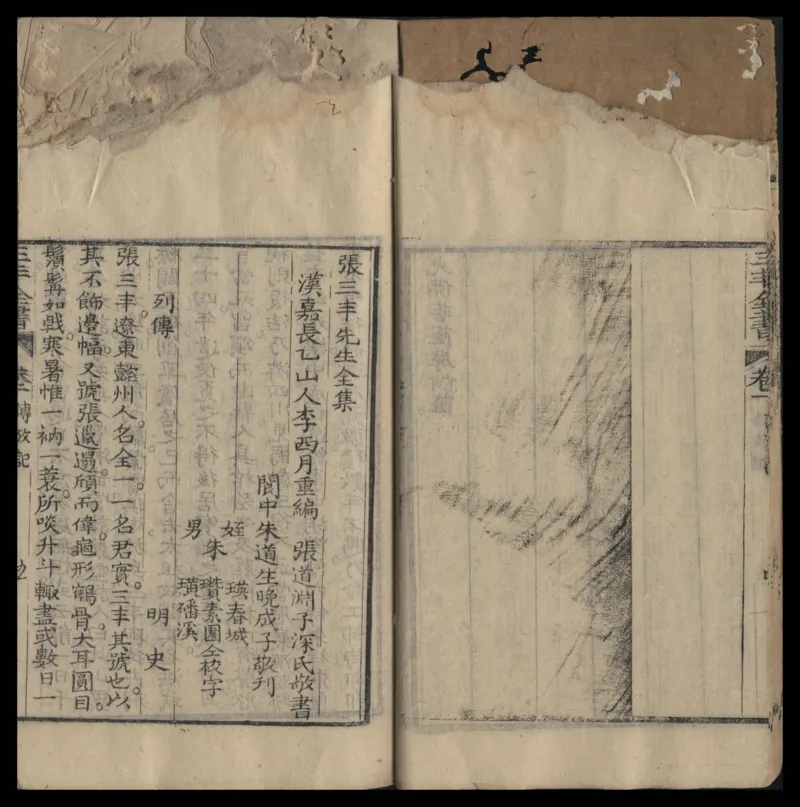 三丰全書 卷一
張三丰先生全集
漢嘉長乙山人李西月重編 張道淵子深氏敬書
閬中朱道生晚成子敬刊
姪 瑛春城
男 朱 瓚素園仝校字
璜磻溪。
列傳 明史
張三丰遼東懿州人。名全一。一名君實。三丰其號也。以
其不飾邊幅。又號張邋遢。頎而偉。龜形鶴骨。大耳圓目。
鬚髯如戟。寒暑惟一衲一蓑。所啖升斗輒盡。或數日一
三丰全書 卷一